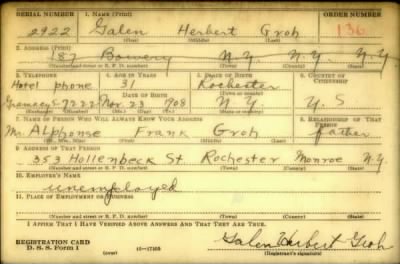 SERIAL NUMBER 1. NAME (Print) ORDER NUMBER
2922 Galen Herbert Groh 136
(First) (Middle) (Last)
2. ADDRESS (Print)
187 Bowery N.Y. N.Y. N.Y.
(Number and street or R. F. D. number) (Town) (County) (State)
3. TELEPHONE 4. AGE IN YEARS 5. PLACE OF BIRTH 6. COUNTRY OF CITIZENSHIP
Hotel phone 31 Rochester
DATE OF BIRTH
7722 Nov 23 1908 N.Y. U.S
7. NAME OF PERSON WHO WILL ALWAYS KNOW YOUR ADDRESS 8. RELATIONSHIP OF THAT PERSON
Mr. Alphonse Frank Groh father
(Mr., Mrs., Miss) (First) (Middle) (Last)
9. ADDRESS OF THAT PERSON
353 Hollenbeck St. Rochester Monroe N.Y.
(Number and street or R. F. D. number) (Town) (County) (State)
10. EMPLOYER'S NAME
unemployed
11. PLACE OF EMPLOYMENT OR BUSINESS
(Number and street or R. F. D. number) (Town) (County) (State)
I AFFIRM THAT I HAVE VERIFIED ABOVE ANSWERS AND THAT THEY ARE TRUE.
REGISTRATION CARD
D. S. S. Form 1 (over) 16—17105 Galen Herbert Groh
(Registrant's signature)